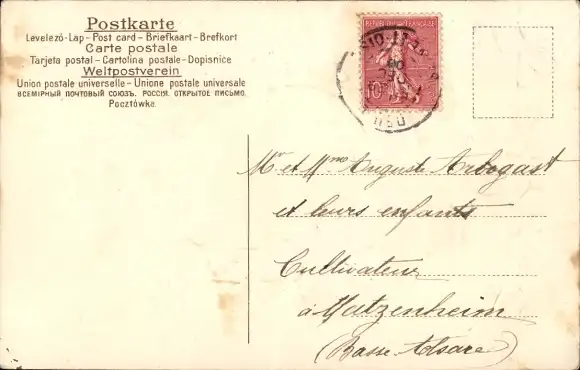 Postkarte
Levelező-Lap – Post card – Briefkaart – Brefkort
Carte postale
Tarjeta postal – Cartolina postale – Dopisnice
Weltpostverein
Union postale universelle – Unione postale universale
ВСЕМІРНЫЙ ПОЧТОВЫЙ СОЮЗЪ. РОССІЯ. ОТКРЫТОЕ ПИСЬМО.
Pocztówka.
REPUBLIQUE FRANÇAISE
10
Mr et Mme Auguste Arbogast
et leurs enfants
Cultivateur
à Matzenheim
(Basse Alsace)